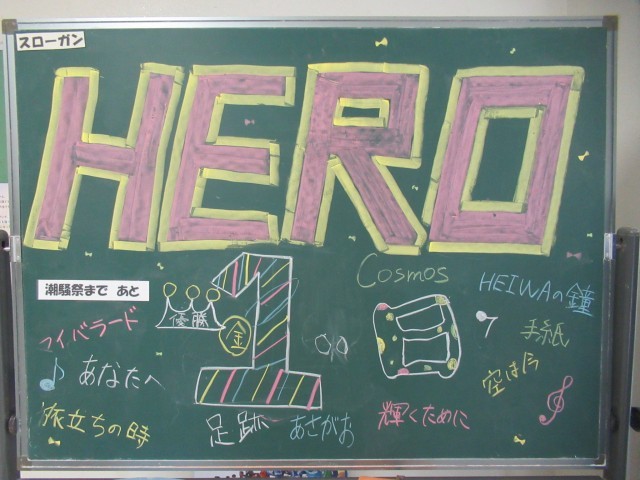 スローガン
HERO
潮騒祭まで あと
優勝
金
1
日
Cosmos
HEIWAの鐘
マイバラード
手紙
あなたへ
空は今
旅立ちの時
足跡
あさがお
輝くために